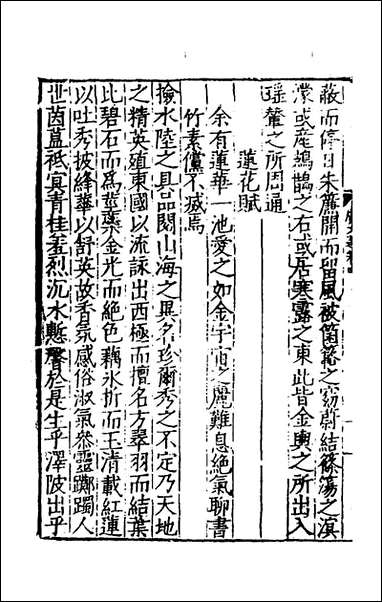 蔽而停日朱簾開而留風被箘簬之窈蔚結篠簜之溟
濛或産鳷鵲之右或居寒露之東此皆金輿之所出入
瑶輦之所周通
蓮花賦
余有蓮華一池愛之如金宇宙之麗難息絕氣聊書
竹素儻不滅焉
撿水陸之具品閱山海之異名珍爾秀之不定乃天地
之精英殖東國以流詠出西極而擅名方翠羽而結葉
比碧石而爲莖蘂金光而絕色藕氷折而玉清載紅蓮
以吐秀披絳華以舒英故香氛感俗淑氣叅靈躑躅人
世茵葢祇冥青桂羞烈沉水慙馨於是生乎澤陂出乎